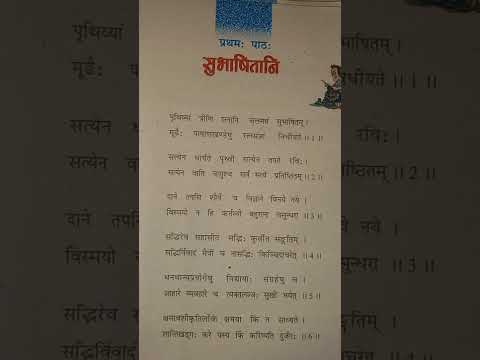 प्रथमः पाठः
सुभाषितानि
पृथिव्यां त्रीणि रत्नानि जलमन्नं सुभाषितम् ।
मूढैः पाषाणखण्डेषु रत्नसंज्ञा विधीयते ॥1॥
सत्येन धार्यते पृथ्वी सत्येन तपते रविः ।
सत्येन वाति वायुश्च सर्वं सत्ये प्रतिष्ठितम् ॥2॥
दाने तपसि शौर्ये च विज्ञाने विनये नये ।
विस्मयो न हि कर्त्तव्यो बहुरत्ना वसुन्धरा ॥3॥
सद्भिरेव सहासीत सद्भिः कुर्वीत सङ्गतिम् ।
सद्भिर्विवादं मैत्रीं च नासद्भिः किञ्चिदाचरेत् ॥4॥
धनधान्यप्रयोगेषु विद्यायाः संग्रहेषु च ।
आहारे व्यवहारे च त्यक्तलज्जः सुखी भवेत् ॥5॥
क्षमावशीकृतिर्लोके क्षमया किं न साध्यते ।
शान्तिखड्गः करे यस्य किं करिष्यति दुर्जनः ॥6॥